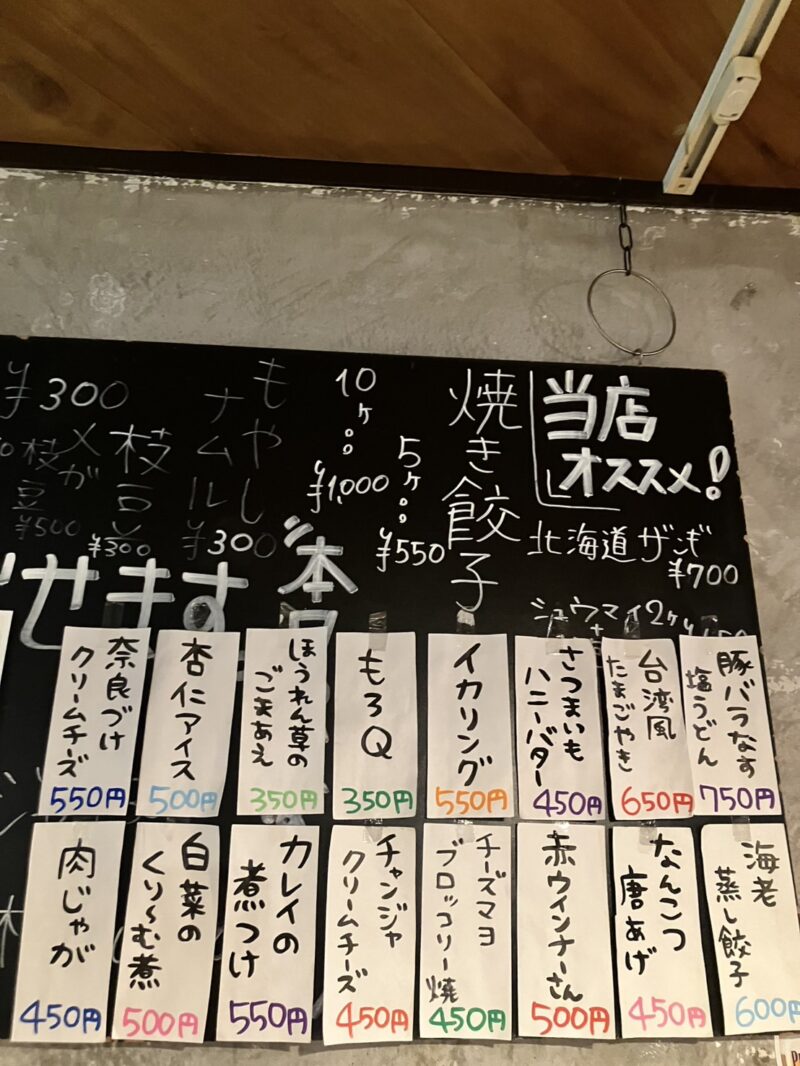 当店
オススメ!
北海道ザンギ
¥700
シュウマイ2ヶ
焼き餃子
5ヶ。。
¥550
10ヶ。。
¥1,000
もやし
ナムル
¥300
枝豆
¥300
¥300
枝豆
¥500
せます
豚バラなす
塩うどん
750円
台湾風
たまごやき
650円
さつまいも
ハニーバター
450円
イカリング
550円
もろQ
350円
ほうれん草の
ごまあえ
350円
杏仁アイス
500円
奈良づけ
クリームチーズ
550円
海老
蒸し餃子
600円
なんこつ
唐あげ
450円
赤ウインナーさん
500円
チーズマヨ
ブロッコリー焼
450円
チャンジャ
クリームチーズ
450円
カレイの
煮つけ
550円
白菜の
くり〜む煮
500円
肉じゃが
450円